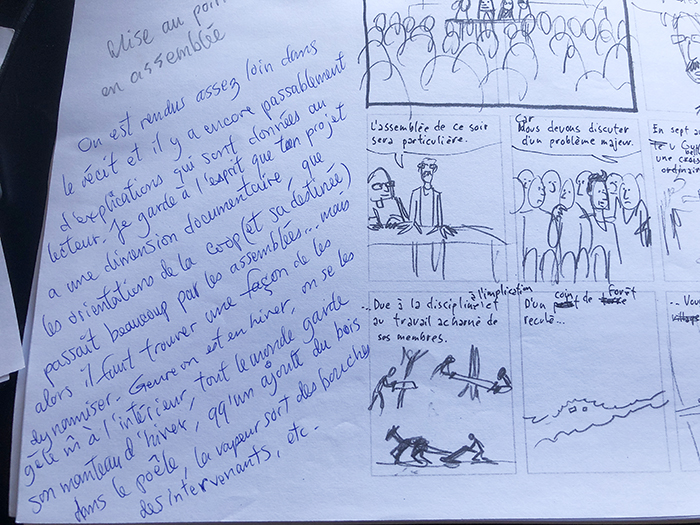 Mise au point
en assemblée
On est rendus assez loin dans
le récit et il y a encore passablement
d'explications qui sont données au
lecteur. Je garde à l'esprit que ton projet
a une dimension documentaire, que
les orientations de la coop (et sa destinée)
passait beaucoup par les assemblées... mais
alors il faut trouver une façon de les
dynamiser. Genre on est en hiver, on se les
gèle m̂ à l'intérieur, tout le monde garde
son manteau d'hiver, qq'un ajoute du bois
dans le poêle, la vapeur sort des bouches
des intervenants, etc.
L'assemblée de ce soir
sera particulière.
Car
Nous devons discuter
d'un problème majeur.
En sept
une
ordinaire
à l'implication
Due à la discipline et
au travail acharné de
ses membres.
coin forêt
D'un de
reculé...
... Vou